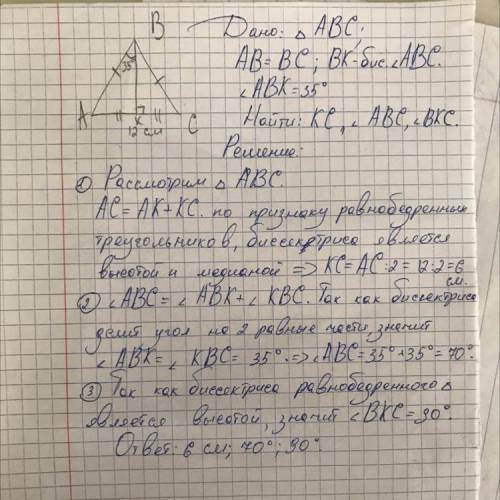 B
Дано: △ ABC;
AB = BC; BK-бис.∠ABC.
35°
∠ABK = 35°
A
K
C
12 см
Найти: KC, ∠ABC, ∠BKC.
Решение:
① Рассмотрим △ ABC.
AC = AK + KC. по признаку равнобедренных
треугольников, биссектриса является
высотой и медианой => KC = AC : 2 = 12 : 2 = 6
см.
② ∠ABC = ∠ABK + ∠KBC. Так как биссектриса
делит угол на 2 равные части, значит
∠ABK = ∠KBC = 35° => ∠ABC = 35° + 35° = 70°.
③ Так как биссектриса равнобедренного △
является высотой, значит ∠BKC = 90°.
Ответ: 6 см; 70°; 90°